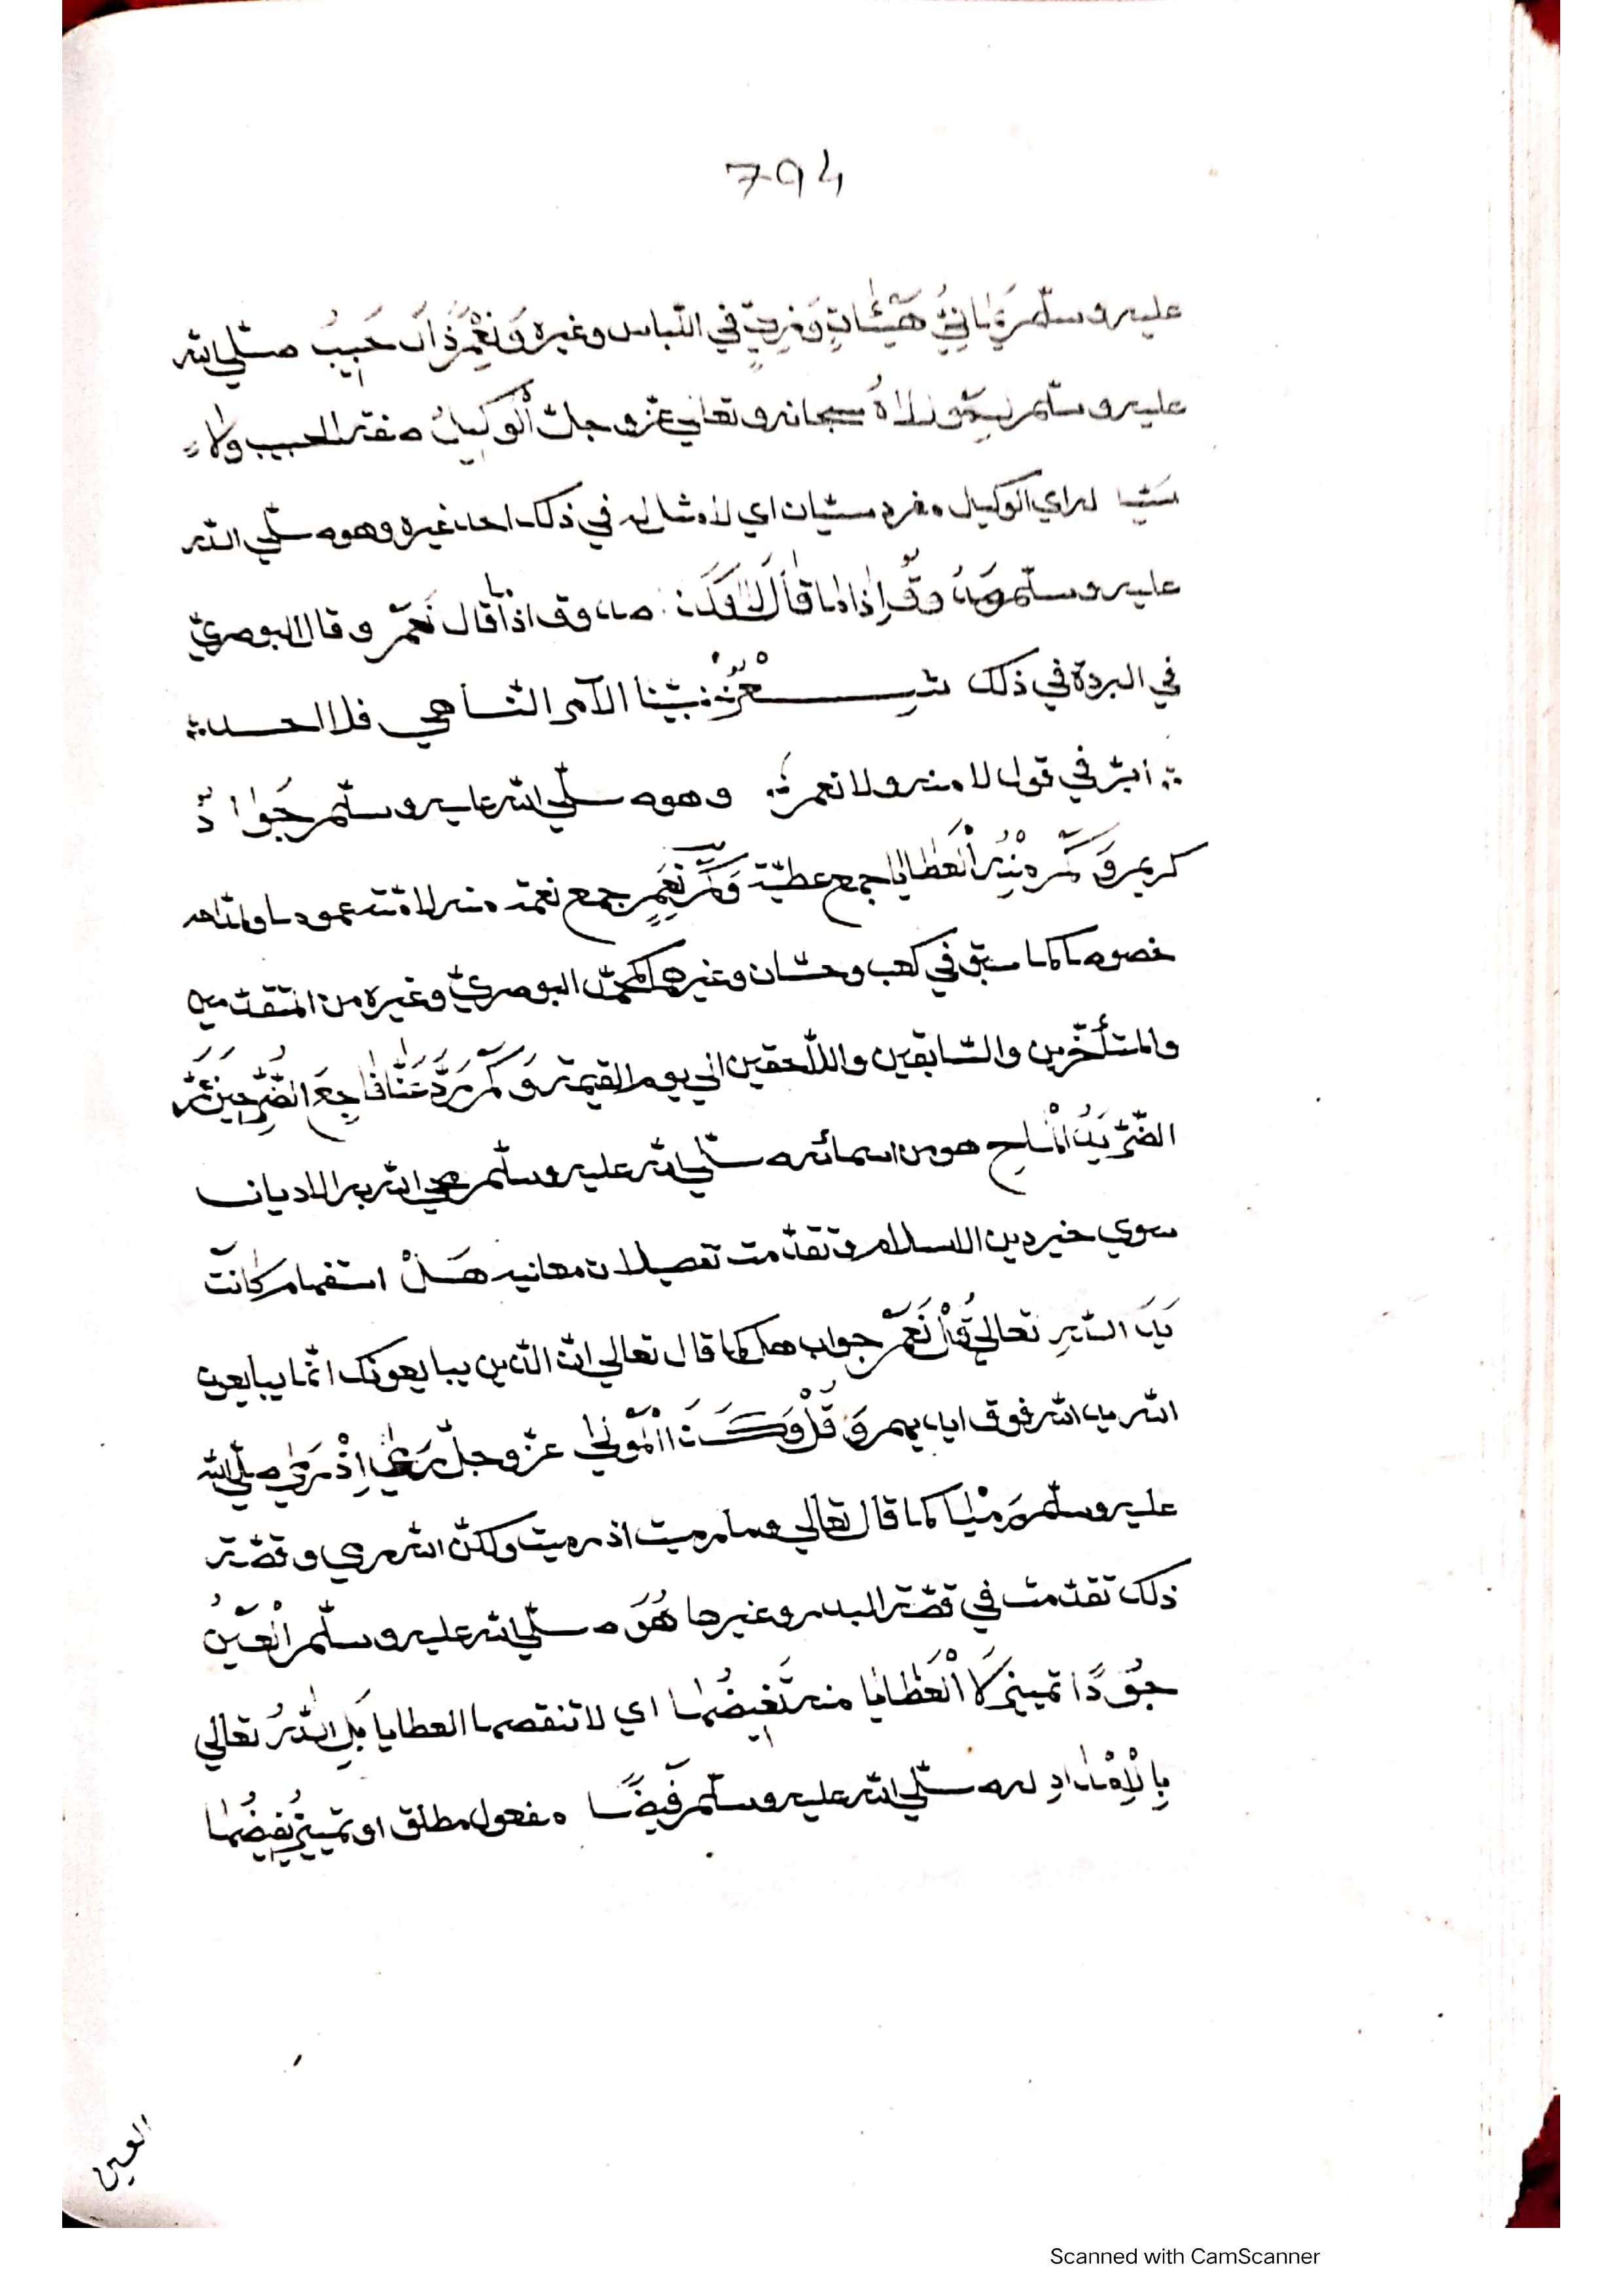 794
عليه وسلم هَيْئَاتٍ في اللباس وغيره وَنِعْمَ ذَاكَ حَبِيبُ صلي الله
عليه وسلم سبحانه وتعالي عز وجل اَلْوَكِيلُ صفة الحبيب ولاء
سيا له اي الوكيل مفرد سيان اي لا مثال له في ذلك احد غيره وهو صلي الله
عليه وسلم صدوق اذا قال نَعَمْ وقال البوصري
في البردة في ذلك شعر نبينا الآمر الناهي فلا احد
ابر في قول لا منه ولا نعم وهو صلي الله عليه وسلم جَوَادٌ
كريم وَكَمْ مِنْهُ الْعَطَايَا جمع عطية وَكَمْ نِعَمٍ جمع نعمة منه لامته عموما ولمداحه
خصوصا كما سبق في كعب وحسان وغيرهما كمحمد البوصري وغيره من المتقدمين
والمتأخرين والسابقين واللاحقين الي يوم القيمة وَكَمْ رَدَّ عَنَّا فَاجِعَ الضُّرِّ حِينَ
الضُّرُّ الْمَاحِ هو من اسمائه صلي الله عليه وسلم محي الله به الاديان
سوي خير دين الاسلام وتقدمت تفصيلات معانيه هَلْ استفهام كَانَتْ
يَدَ اللهِ تعالي قُلْ نَعَمْ جواب هل كما قال تعالي ان الذين يبايعونك انما يبايعون
الله يد الله فوق ايديهم وَقُلْ الْمَوْلَى عز وجل رَمَى اِذْ رَمَى صلي الله
عليه وسلم رَمْيًا كما قال تعالي وما رميت اذ رميت ولكن الله رمي وقصة
ذلك تقدمت في قصة البدر وغيرها هُوَ صلي الله عليه وسلم الْعَيْنُ
جُودًا تمييز لَا الْعَطَايَا منه تَغِيضُهَا اي لا تنقصها العطايا بَلِ اللهُ تعالي
بِالْاِمْدَادِ له صلي الله عليه وسلم فَيْضًا مفعول مطلق او تمييز يُفِيضُهَا
العين
Scanned with CamScanner